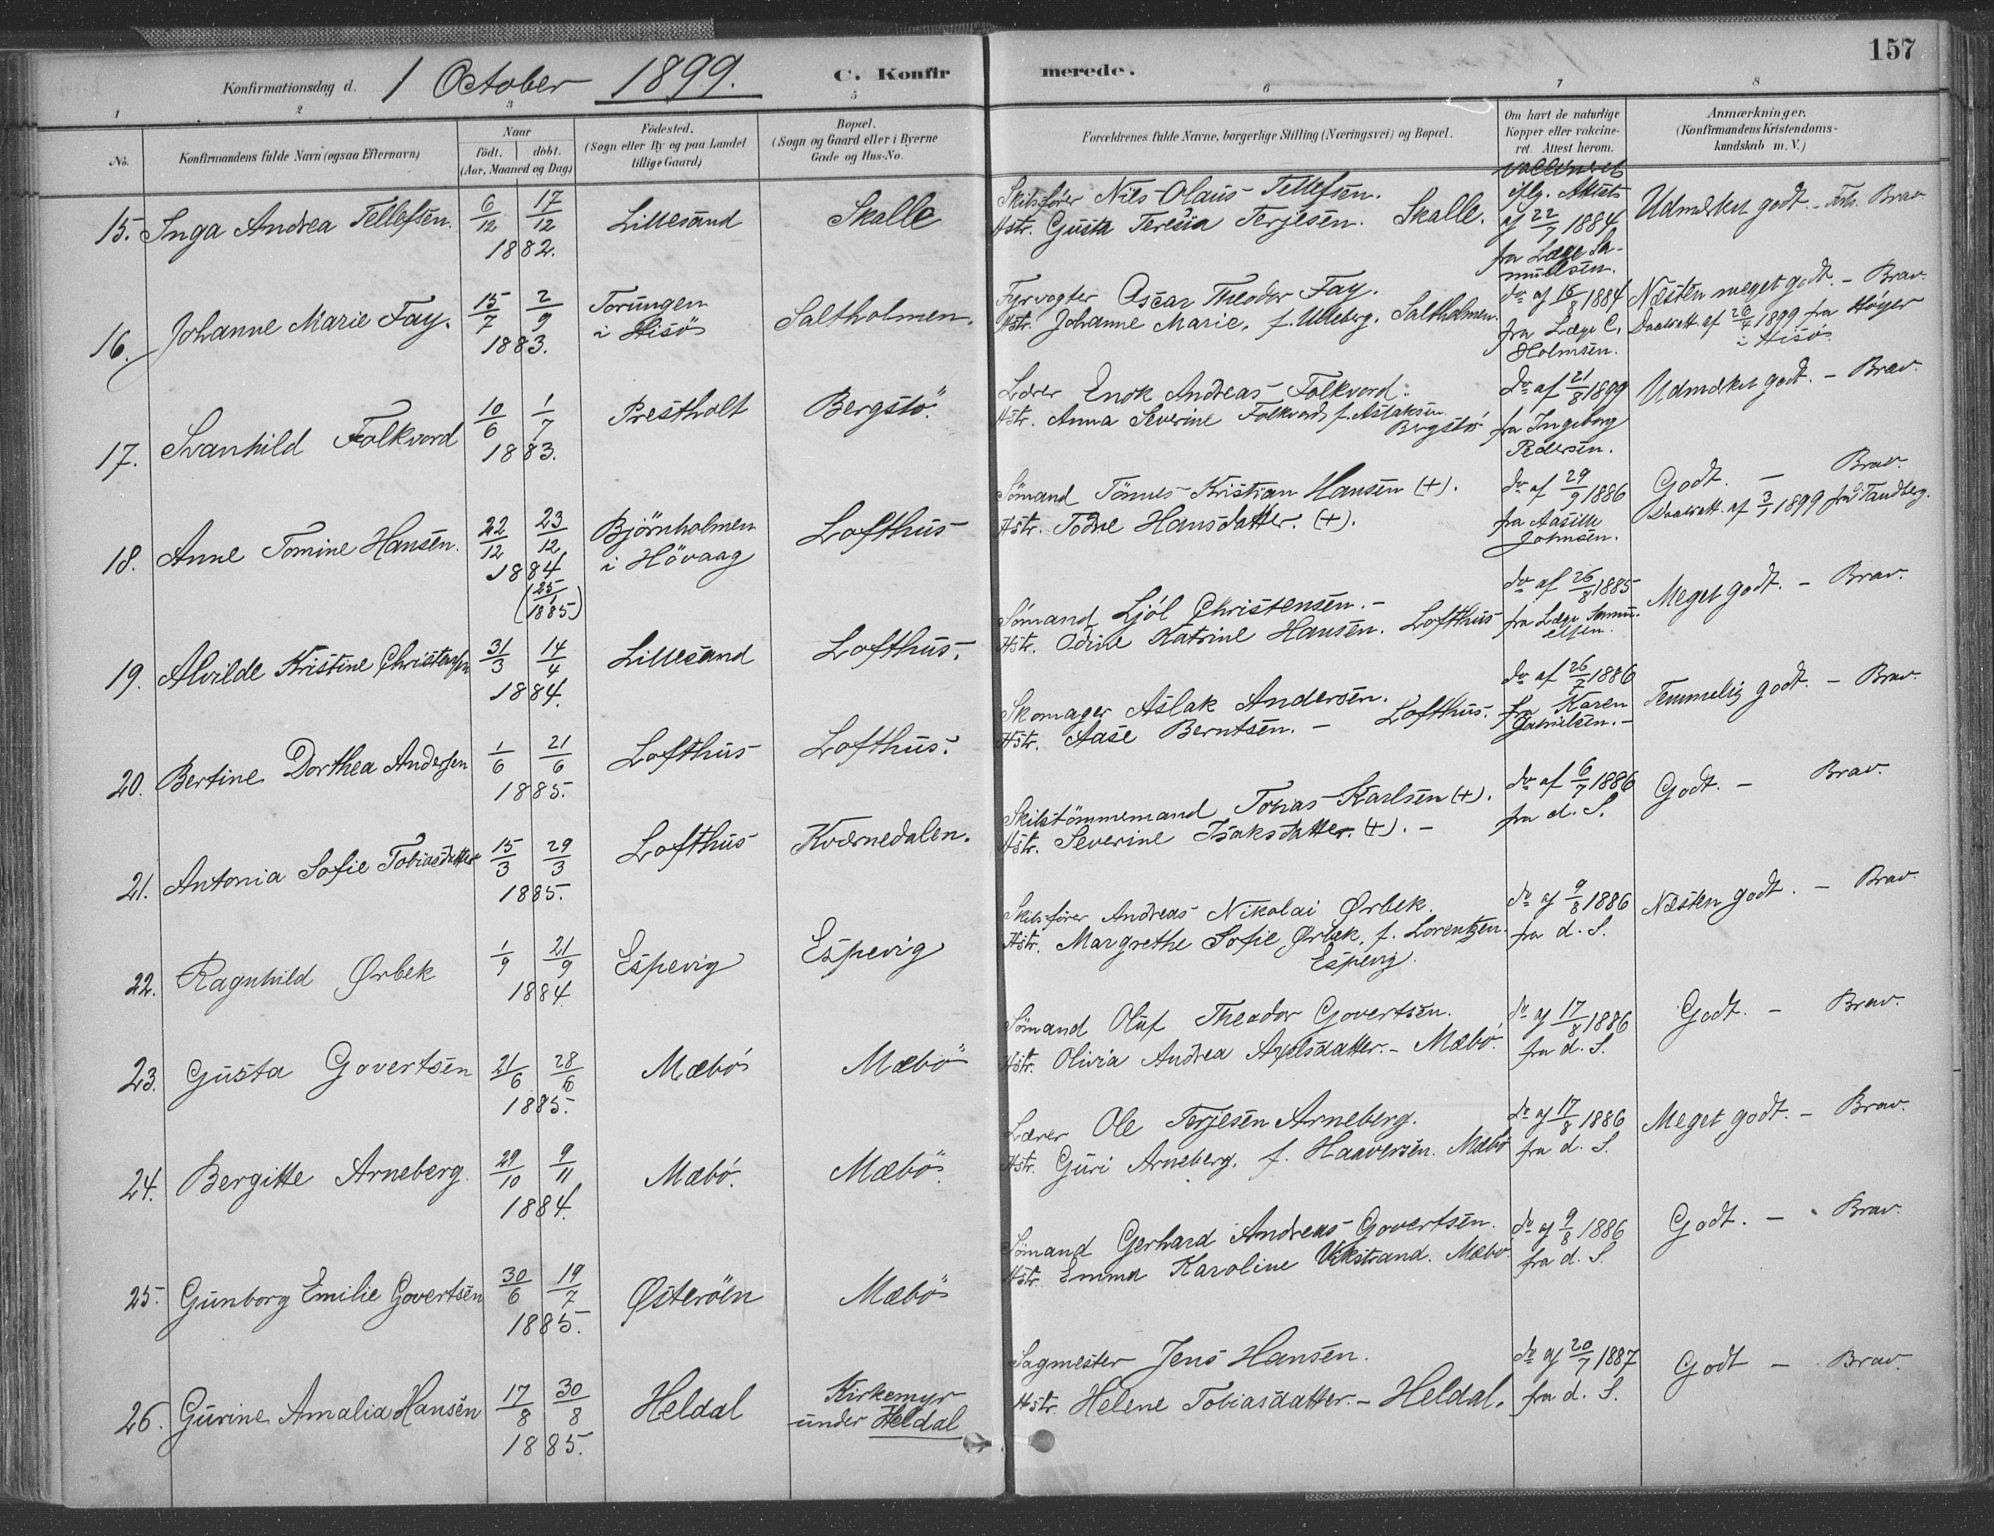 157
Konfirmationsdag d. 1 October 1899. C. Konfirmerede.
1 2 3 5 6 7 8
No. Konfirmandens fulde Navn (ogsaa Efternavn) Naar født. døbt. (Aar, Maaned og Dag) Fødested. (Sogn eller By og paa Landet tillige Gaard) Bopæl. (Sogn og Gaard eller i Byerne Gade og Hus-No. Forældrenes fulde Navne, borgerlige Stilling (Næringsvei) og Bopæl. Om havt de naturlige Kopper eller vakcineret. Attest herom. Anmærkninger. (Konfirmandens Kristendomskundskab m. V.)
15. Inga Andrea Tellefsen. 6/12 17/12 1882. Lillesand Skalle
Skibsfører Nils Olaus Tellefsen.
Hstr. Gusta Teresia Terjesen. Skalle.
vaccineret
iflg. Attest
af 22/7 1884
fra Læge Sa-
muelsen.
Udmærket godt. - Brav.
16. Johanne Marie Fay. 15/7 2/9 1883. Torungen i Hisö Saltholmen.
Fyrvogter Oscar Theodor Fay.
Hstr. Johanne Marie, f. Ulleberg. Saltholmen.
do af 15/8 1884
fra Læge C.
Holmsen.
Næsten meget godt. - Brav.
Daabsatt. af 26/4 1899 fra Høyer
i Hisö.
17. Svanhild Folkvord 10/6 1/7 1883. Prestholt Bergstö.
Lærer Enok Andreas Folkvord.
Hstr. Anna Severine Folkvord, f. Aslaksen
Bergstö
do af 21/8 1899
fra Ingeborg
Pedersen.
Udmærket godt. - Brav.
18. Anne Tomine Hansen. 22/12 23/12 1884 (25/1 1885) Björnholmen i Hövaag Lofthus
Sömand Tönnes Kristian Hansen (+).
Hstr. Todne Hansdatter. (+).
do af 29/9 1886
fra Aasille
Johnsen.
Godt. - Brav.
Daabsatt. af 3/7 1899 fra Tandberg.
19. Alvilde Kristine Christensen 31/3 14/4 1884. Lillesand Lofthus.
Sömand Ljöl Christensen. -
Hstr. Odine Katrine Hansen. Lofthus
do af 26/8 1885
fra Læge Samu-
elsen.
Meget godt. - Brav.
20. Bertine Dorthea Andersen 1/6 21/6 1885. Lofthus Lofthus.
Skomager Aslak Andersen.
Hstr. Aase Berntsen. - Lofthus.
do af 26/7 1886
fra Karen
Gabrielsen. -
Temmelig godt. - Brav.
21. Antonia Sofie Tobiasdatter 15/3 29/3 1885. Lofthus Kværnedalen.
Skibstömmermand Tobias Karlsen (+).
Hstr. Severine Isaksdatter. (+). -
do af 6/7 1886
fra d. S.
Godt. - Brav.
22. Ragnhild Ørbek 1/9 21/9 1884 Espevig Espevig
Skibsfører Andreas Nikolai Ørbek.
Hstr. Margrethe Sofie Ørbek, f. Lorentzen.
Espevig.
do af 9/8 1886
fra d. S.
Næsten godt. - Brav.
23. Gusta Govertsen 21/6 28/6 1885. Mæbö Mæbö
Sömand Oluf Theodor Govertsen.
Hstr. Olivia Andrea Axelsdatter. - Mæbö.
do af 17/8 1886
fra d. S.
Godt. - Brav.
24. Bergitte Arneberg. 29/10 9/11 1884. Mæbö. Mæbö.
Lærer Ole Terjesen Arneberg.
Hstr. Guri Arneberg, f. Haaversen. Mæbö
do af 17/8 1886
fra d. S.
Meget godt. - Brav.
25. Gunborg Emilie Govertsen 30/6 19/7 1885. Østeröen Mæbö
Sömand Gerhard Andreas Govertsen.
Hstr. Emma Karoline Vikstrand. Mæbö.
do af 9/8 1886
fra d. S.
Godt. - Brav.
26. Gurine Amalia Hansen 17/8 30/8 1885. Heldal Kirkemyr under Heldal
Sagmester Jens Hansen.
Hstr. Helene Tobiasdatter. - Heldal.
do af 20/7 1887
fra d. S.
Godt - Brav.